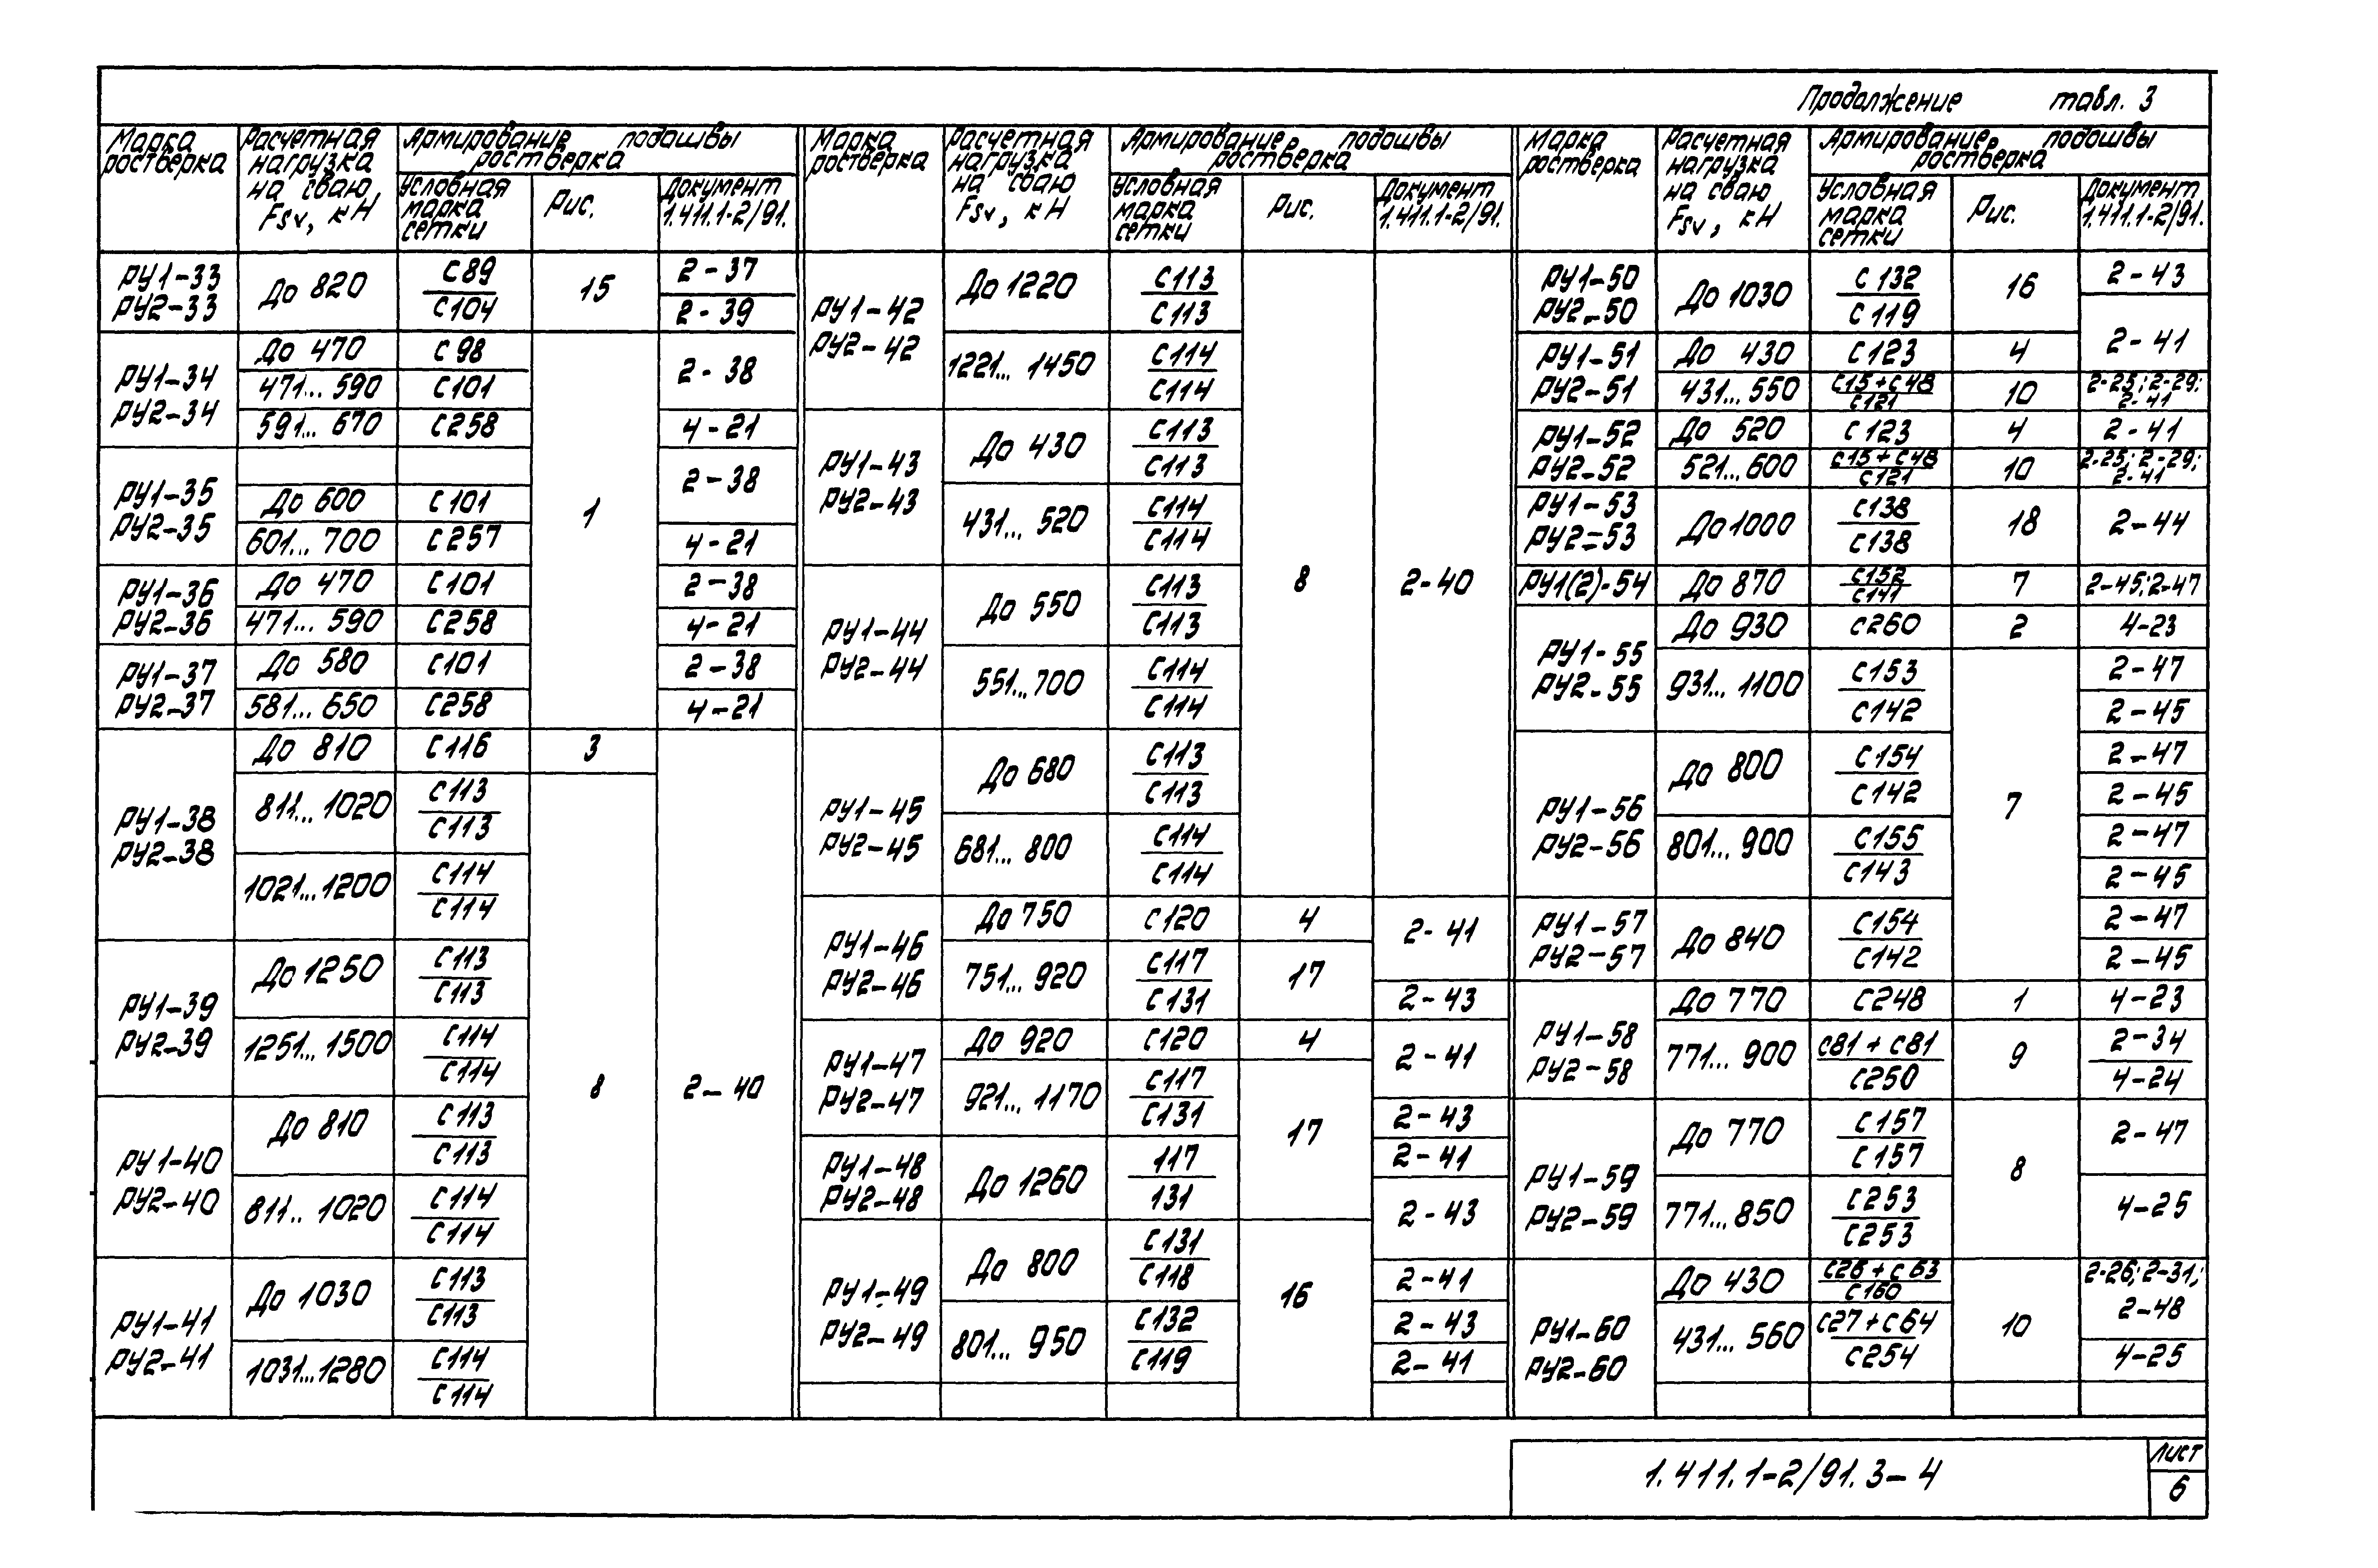 Продолжение табл. 3
Марка ростверка
Расчетная нагрузка на сваю, Fsv, кН
Армирование подошвы ростверка
Условная марка сетки
Рис.
Документ 1.411.1-2/91.
РУ1-33 РУ2-33
До 820
С89 С104
15
2-37
2-39
РУ1-34 РУ2-34
До 470
С98
1
2-38
471... 590
С101
591... 670
С258
4-21
РУ1-35 РУ2-35
2-38
До 600
С101
601... 700
С257
4-21
РУ1-36 РУ2-36
До 470
С101
2-38
471... 590
С258
4-21
РУ1-37 РУ2-37
До 580
С101
2-38
581... 650
С258
4-21
РУ1-38 РУ2-38
До 810
С116
3
2-40
811... 1020
С113 С113
8
1021...1200
С114 С114
РУ1-39 РУ2-39
До 1250
С113 С113
1251... 1500
С114 С114
РУ1-40 РУ2-40
До 810
С113 С113
811.. 1020
С114 С114
РУ1-41 РУ2-41
До 1030
С113 С113
1031...1280
С114 С114
Марка ростверка
Расчетная нагрузка на сваю Fsv, кН
Армирование подошвы ростверка
Условная марка сетки
Рис.
Документ 1.411.1-2/91.
РУ1-42 РУ2-42
До 1220
С113 С113
8
2-40
1221... 1450
С114 С114
РУ1-43 РУ2-43
До 430
С113 С113
431... 520
С114 С114
РУ1-44 РУ2-44
До 550
С113 С113
551...700
С114 С114
РУ1-45 РУ2-45
До 680
С113 С113
681... 800
С114 С114
РУ1-46 РУ2-46
До 750
С120
4
2-41
751... 920
С117 С131
17
2-43
РУ1-47 РУ2-47
До 920
С120
4
2-41
921... 1170
С117 С131
17
2-43
РУ1-48 РУ2-48
До 1260
117 131
2-41
2-43
РУ1-49 РУ2-49
До 800
С131 С118
16
2-41
801... 950
С132 С119
2-43
2-41
Марка ростверка
Расчетная нагрузка на сваю Fsv, кН
Армирование подошвы ростверка
Условная марка сетки
Рис.
Документ 1.411.1-2/91.
РУ1-50 РУ2-50
До 1030
С132 С119
16
2-43
2-41
РУ1-51 РУ2-51
До 430
С123
4
431... 550
С15+С48 С121
10
2-25; 2-29; 2-41
РУ1-52 РУ2-52
До 520
С123
4
2-41
521...600
С15+С48 С121
10
2-25; 2-29; 2-41
РУ1-53 РУ2=53
До 1000
С138 С138
18
2-44
РУ1(2)-54
До 870
С152 С141
7
2-45;2-47
РУ1-55 РУ2-55
До 930
С260
2
4-23
931... 1100
С153 С142
7
2-47
2-45
РУ1-56 РУ2-56
До 800
С154 С142
2-47
2-45
801... 900
С155 С143
2-47
2-45
РУ1-57 РУ2-57
До 840
С154 С142
2-47
2-45
РУ1-58 РУ2-58
До 770
С248
1
4-23
771... 900
С81 + С81 С250
9
2-34
4-24
РУ1-59 РУ2-59
До 770
С157 С157
8
2-47
771...850
С253 С253
4-25
РУ1-60 РУ2-60
До 430
С26 + С63 С160
10
2-26; 2-31; 2-48
431... 560
С27 + С64 С254
4-25
1.411.1-2/91.3-4
Лист
6